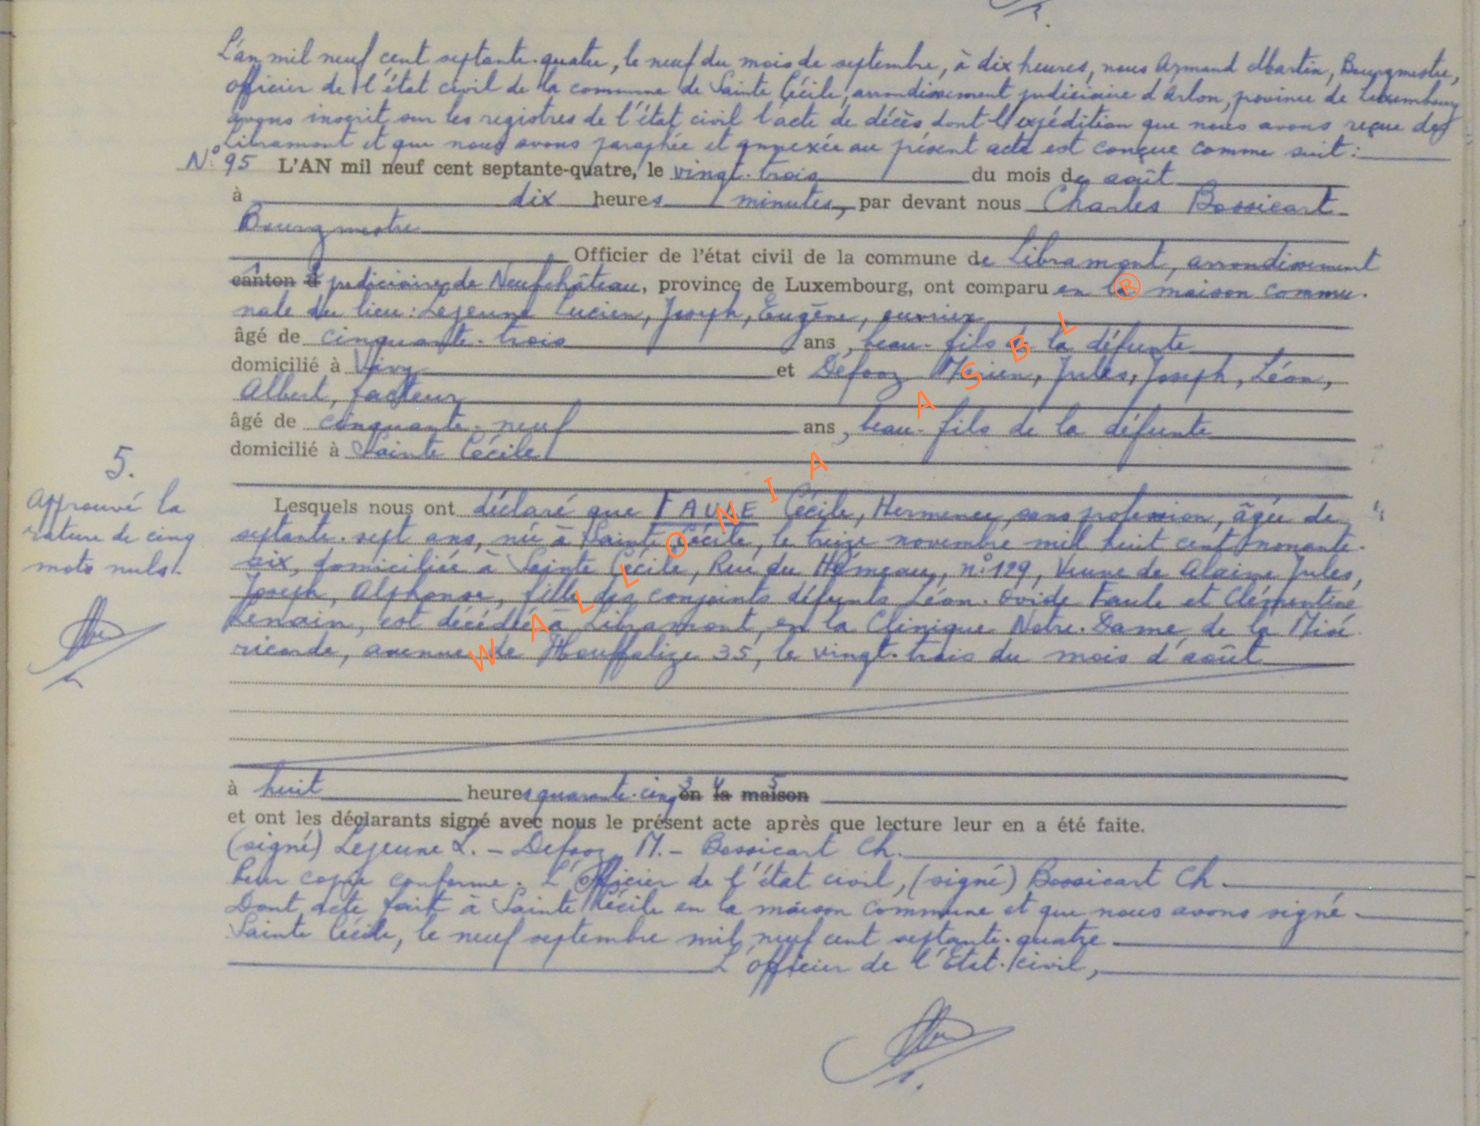 L'an mil neuf cent septante-quatre, le neuf du mois de septembre, à dix heures, nous Armand Martin, Bourgmestre,
officier de l'état civil de la commune de Sainte Cécile, arrondissement judiciaire d'Arlon, province de Luxembourg
avons inscrit sur les registres de l'état civil l'acte de décès dont l'expédition que nous avons reçue de
Libramont et que nous avons paraphée et annexée au présent acte est conçue comme suit :
N° 95 L'AN mil neuf cent septante-quatre, le vingt-trois du mois de août
à dix heures minutes, par devant nous Charles Bossicart
Bourgmestre
Officier de l'état civil de la commune de Libramont, arrondissement
canton d judiciaire de Neufchâteau, province de Luxembourg, ont comparu en la maison commu-
nale du lieu : Lejeune Lucien, Joseph, Eugène, ouvrier
âgé de cinquante-trois ans, beau-fils de la défunte
domicilié à Vivy et Defooz Marien, Jules, Joseph, Léon,
Albert, facteur
âgé de cinquante-neuf ans, beau-fils de la défunte
domicilié à Sainte Cécile
5.
Approuvé la
rature de cinq
mots nuls.
Lesquels nous ont déclaré que FAULE Cécile, Hermence, sans profession, âgée de
septante-sept ans, née à Sainte Cécile, le treize novembre mil huit cent nonante-
six, domiciliée à Sainte Cécile, Rue du Hameau, n° 129, Veuve de Alaime Jules,
Joseph, Alphonse, fille des conjoints défunts Léon-Ovide Faule et Clémentine
Lemain, est décédée à Libramont, en la Clinique Notre-Dame de la Misé-
ricorde, avenue de Houffalize 35, le vingt-trois du mois d'août
à huit heures quarante-cinq en la maison
3 4 5
et ont les déclarants signé avec nous le présent acte après que lecture leur en a été faite.
(signé) Lejeune L. - Defooz M. - Bossicart Ch.
Pour copie conforme. L'Officier de l'état civil, (signé) Bossicart Ch.
Dont acte fait à Sainte Cécile en la maison commune et que nous avons signé
Sainte Cécile, le neuf septembre mil neuf cent septante-quatre
L'officier de l'Etat-civil,
WALLONIA ASBL ®